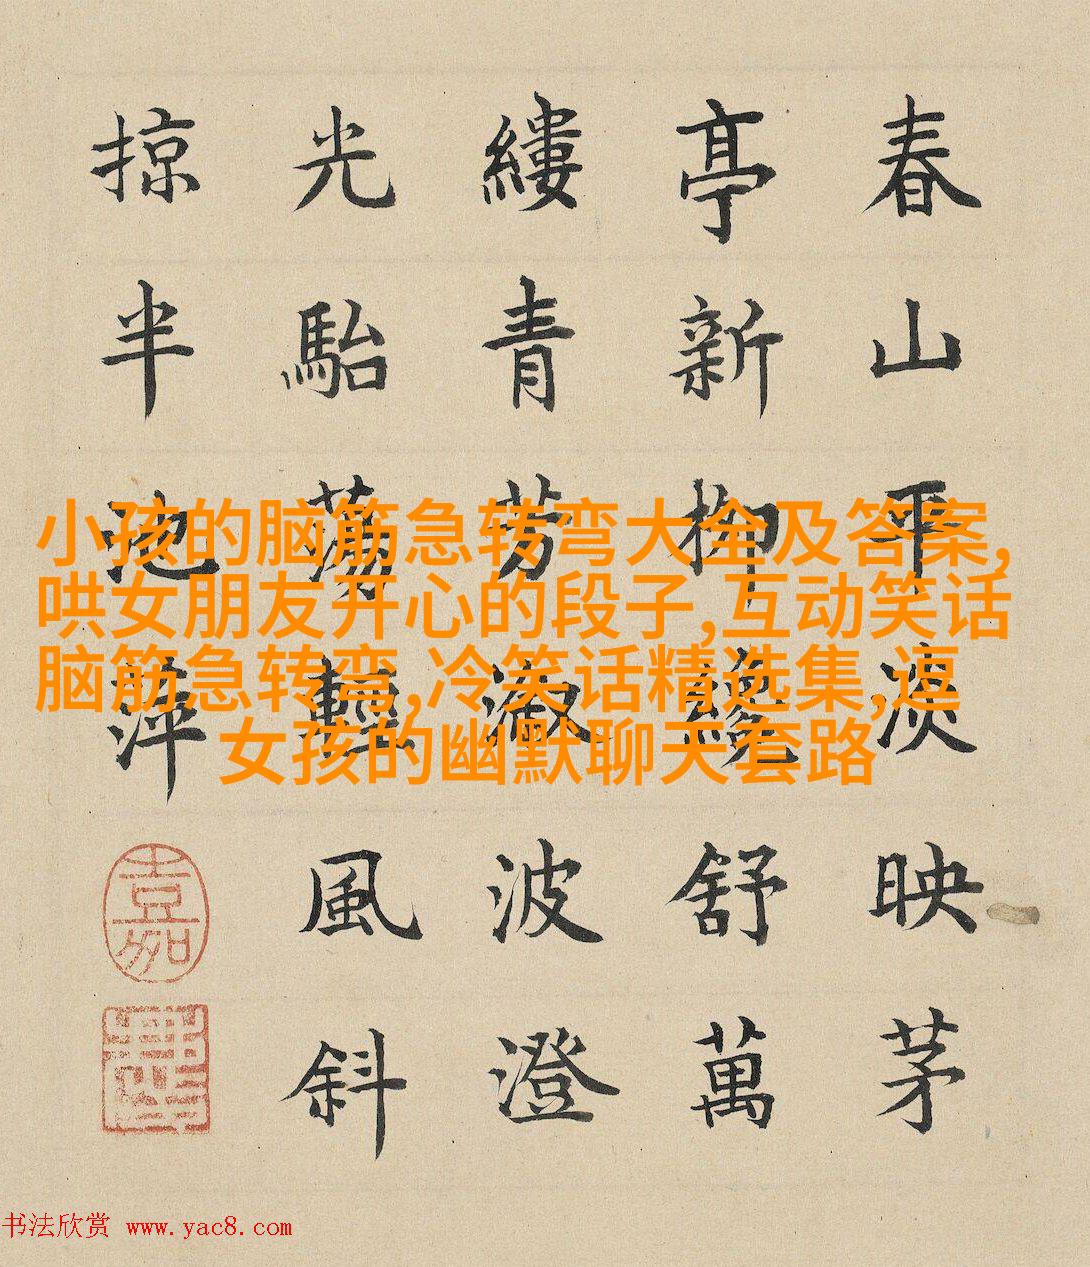 春山平淡映茅
亭新柳纔舒萬
縷青芳溆波澄
光駘蕩輕風斜
掠半池萍
嘉
小孩的脑筋急转弯大全及答案,
哄女朋友开心的段子,互动笑话
脑筋急转弯,冷笑话精选集,逗
女孩的幽默聊天套路
书法欣赏 www.yac8.com